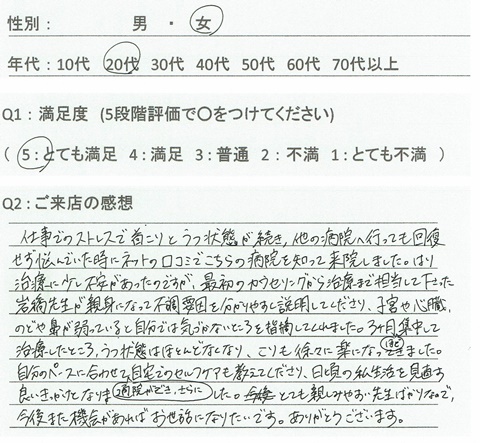 性別： 男 ・ 女
年代：10代 20代 30代 40代 50代 60代 70代以上
Q1：満足度 (5段階評価で〇をつけてください)
( 5：とても満足 4：満足 3：普通 2：不満 1：とても不満 )
Q2：ご来店の感想
仕事でのストレスで首こりとうつ状態が続き、他の病院へ行っても回復
せず悩んでいた時にネットの口コミでこちらの病院を知って来院しました。はり
治療に少し不安があったのですが、最初のカウンセリングから治療まで担当して下さった
先生が親身になって不調要因を分かりやすく説明してくださり、子宮や心臓、
のどや鼻が弱っていると自分では気づかないところを指摘してくれました。3ヶ月集中して
治療したところ、うつ状態はほとんどなくなり、こりも徐々に楽になってきました。
自分のペースに合わせて自宅でのセルフケアも教えてくださり、日頃の私生活を見直す
良いきっかけとなりました。通院ができ、さらに とても親しみやすい先生ばかりなので、
今後また機会があればお世話になりたいです。ありがとうございます。